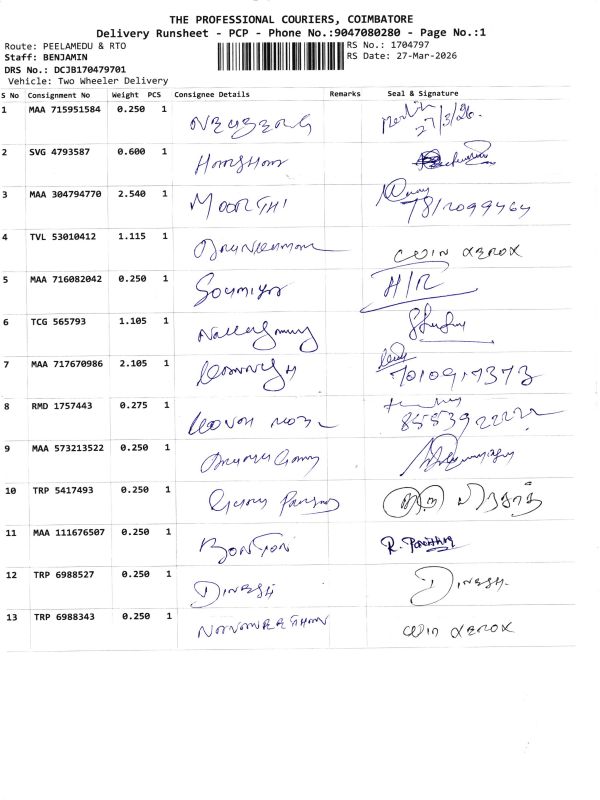 THE PROFESSIONAL COURIERS, COIMBATORE
Delivery Runsheet - PCP - Phone No.:9047080280 - Page No.:1
Route: PEELAMEDU & RTO RS No.: 1704797
Staff: BENJAMIN RS Date: 27-Mar-2026
DRS No.: DCJB170479701
Vehicle: Two Wheeler Delivery
S No Consignment No Weight PCS Consignee Details Remarks Seal & Signature
1 MAA 715951584 0.250 1 27/3/26.
2 SVG 4793587 0.600 1
3 MAA 304794770 2.540 1 MOORTHI
4 TVL 53010412 1.115 1 COIN XEROX
5 MAA 716082042 0.250 1 Soumiya H/R
6 TCG 565793 1.105 1
7 MAA 717670986 2.105 1 7010917373
8 RMD 1757443 0.275 1
9 MAA 573213522 0.250 1
10 TRP 5417493 0.250 1
11 MAA 111676507 0.250 1 BONTON
12 TRP 6988527 0.250 1 DINESH DINESH.
13 TRP 6988343 0.250 1 COIN XEROX